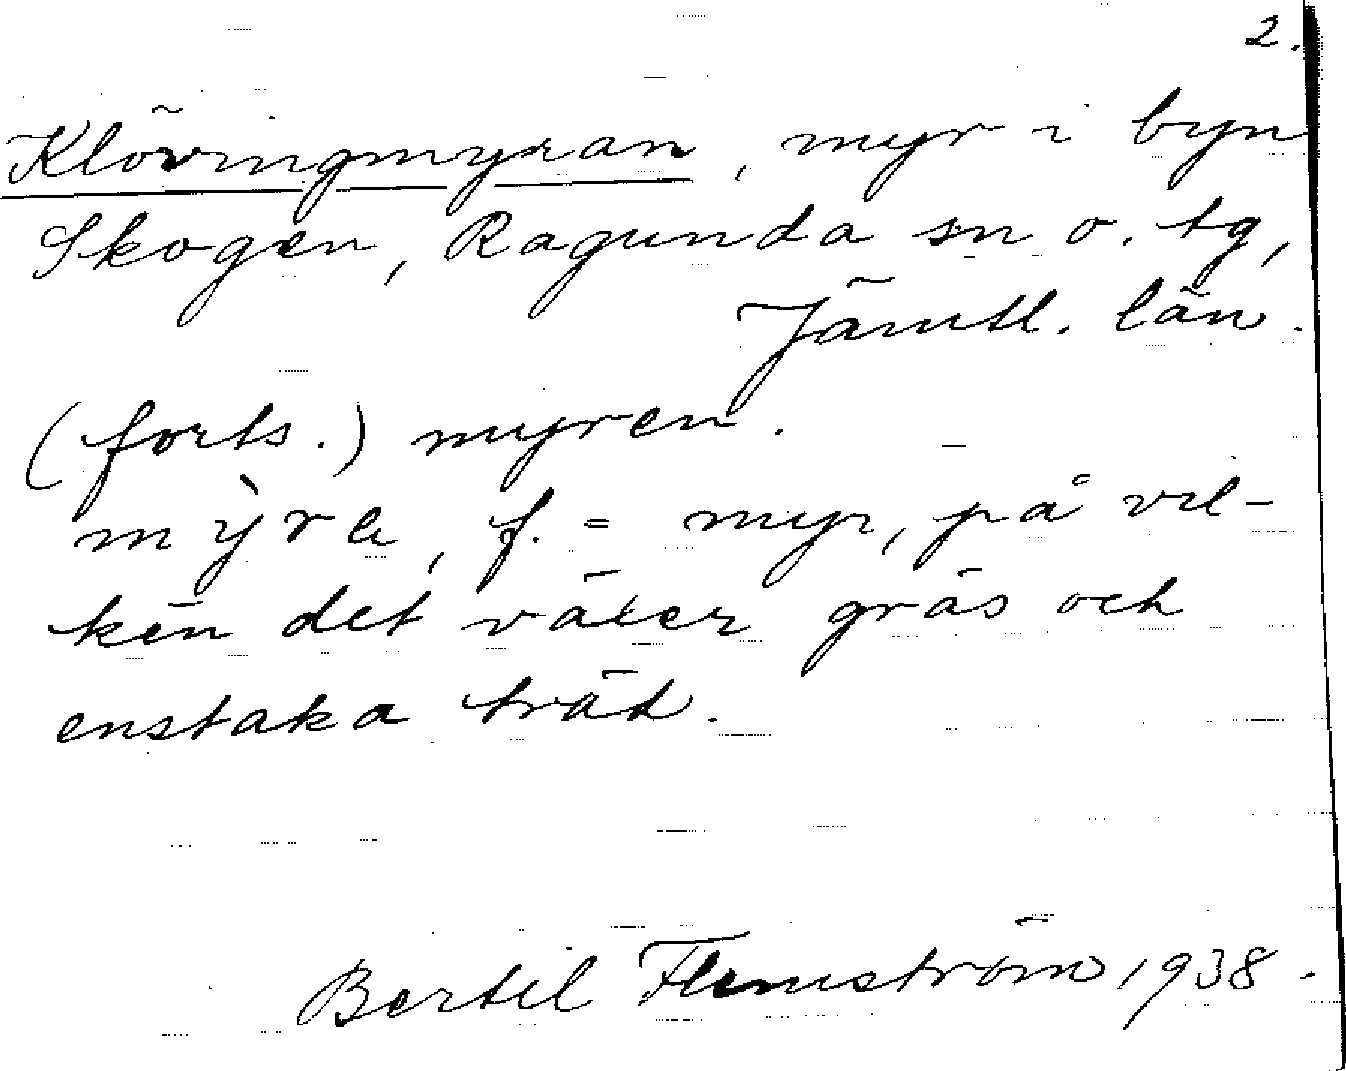 2.
Klövingmyran, myr i byn
Skogen, Ragunda sn o. tg,
Jämtl. län.
(forts.) myren.
mỳra, f. = myr, på vil-
ken det växer gräs och
enstaka träd.
Bertil Flemström, 1938.